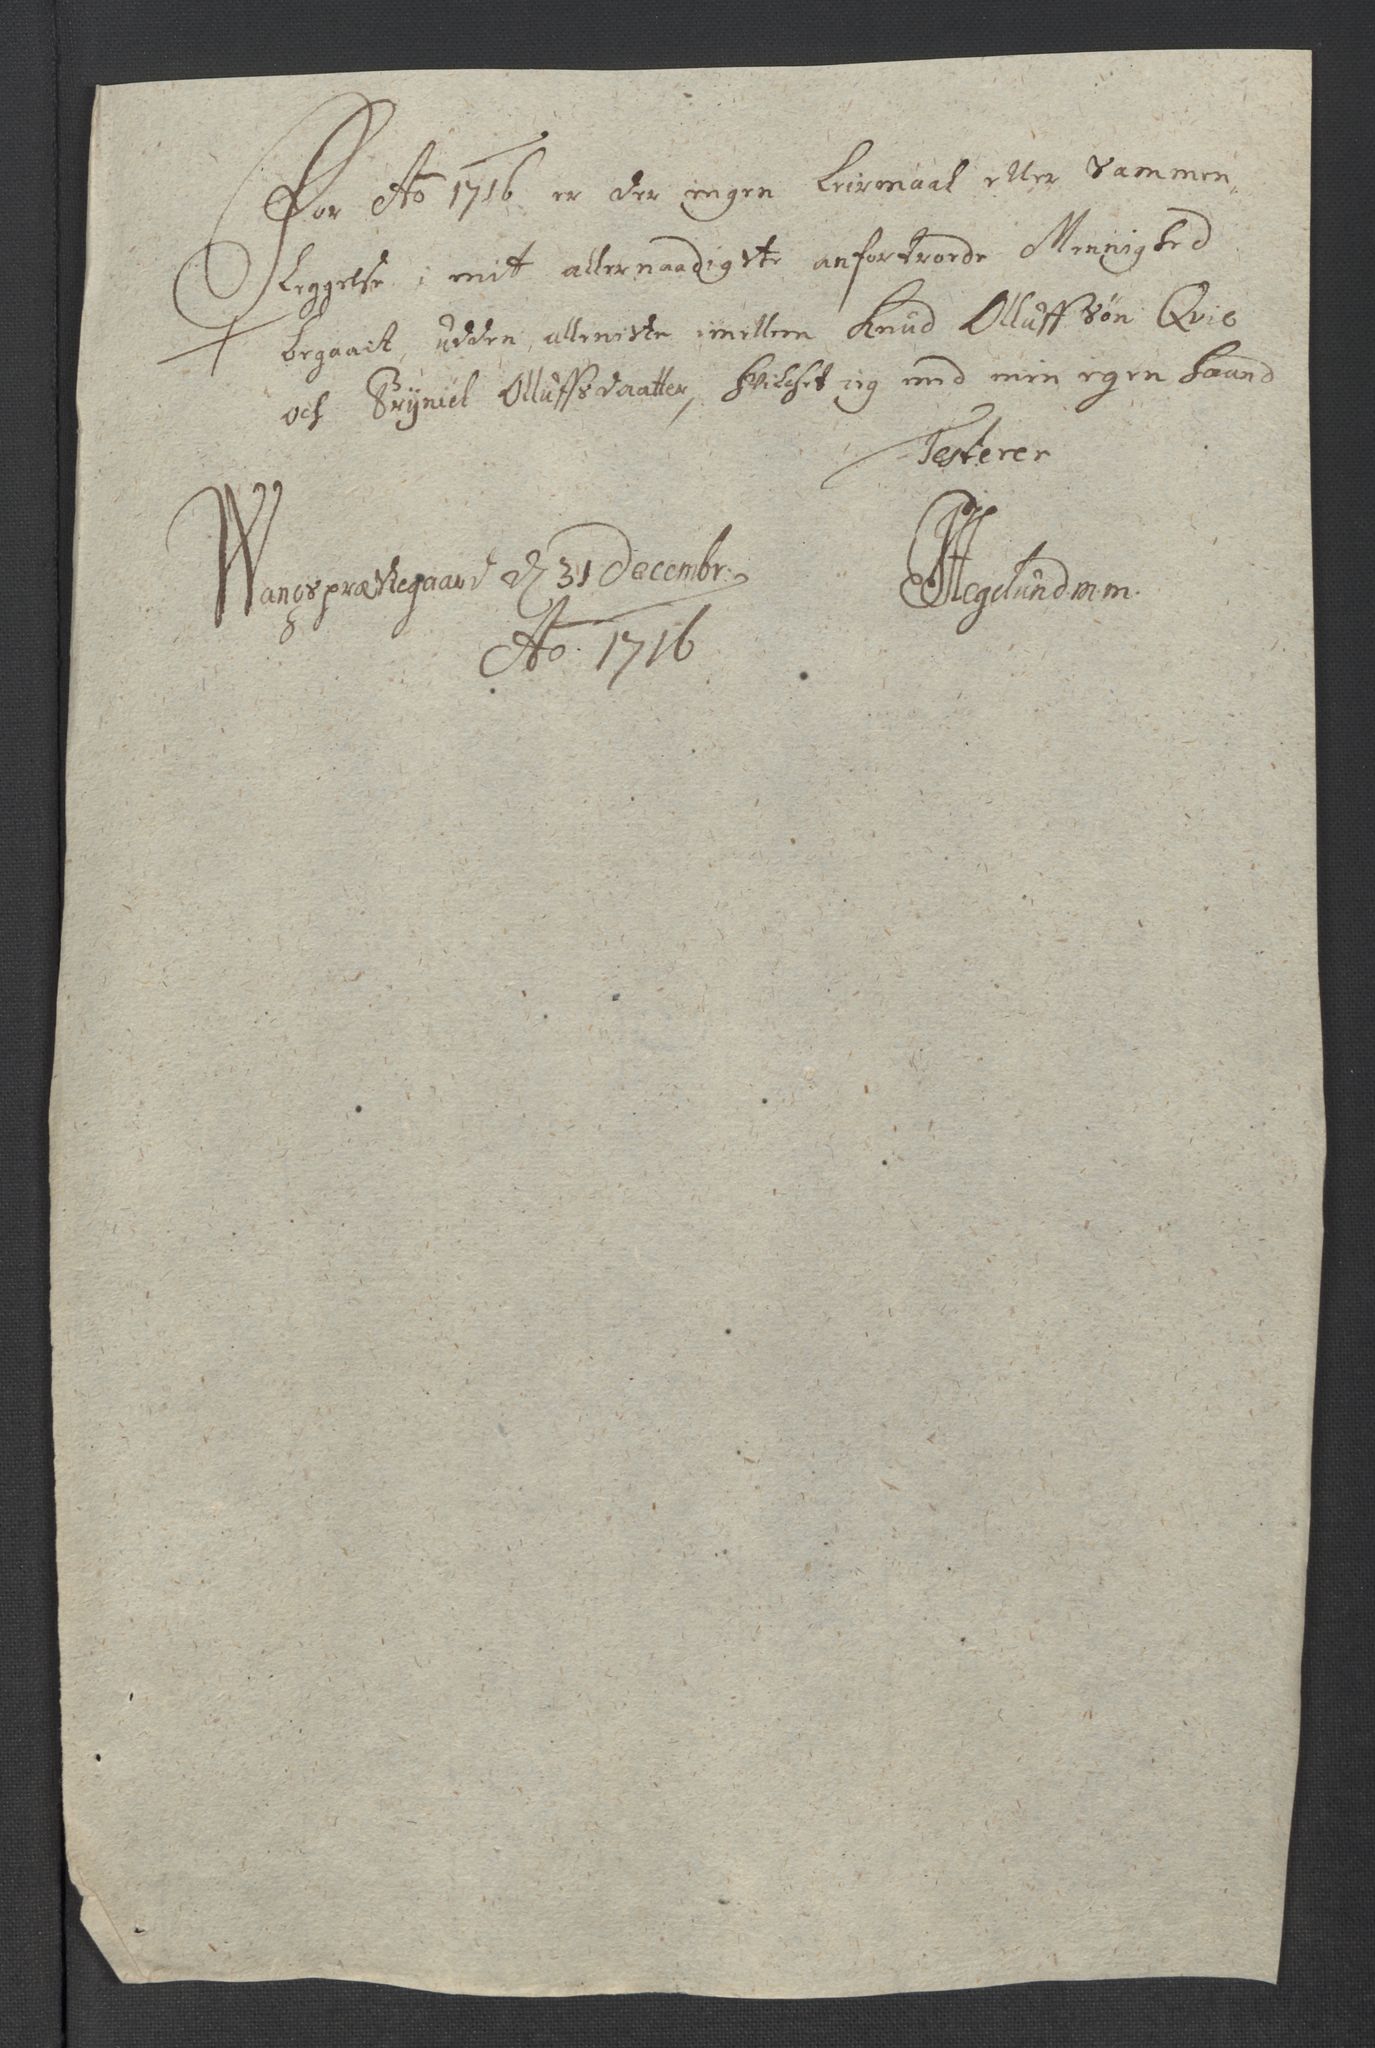 For Ao 1716 er der ingen Leirmaal eller Sammen,
Leggelse i mit allernaadigste anfortroede Meenighed
begaait, udden alleniste imellem Knud Olluffsøn Qvie
och Bryniel Olluffsdaatter, hvilchet ieg med min egen haand
Testerer
Wangs præstegaard d 31 Decembr:
Ao. 1716
Hegelund m.m.